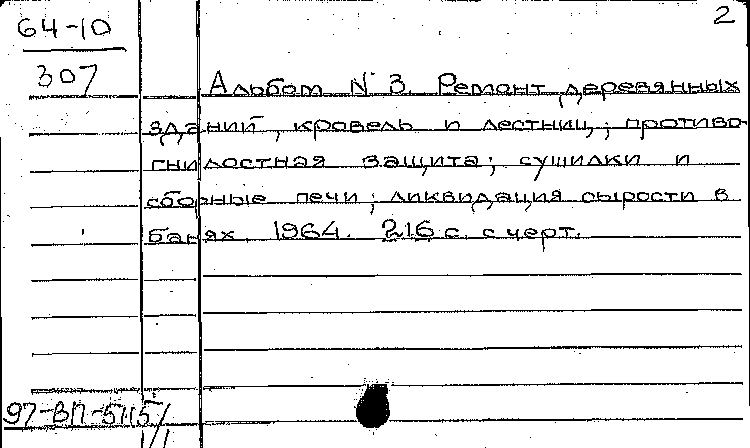 2
64-10
307
Альбом № 3. Ремонт деревянных
зданий, кровель и лестниц; противо-
гнилостная защита; сушилки и
сборные печи; ликвидация сырости в
банях. 1964. 216 с. с черт.
97-ВП-5115/